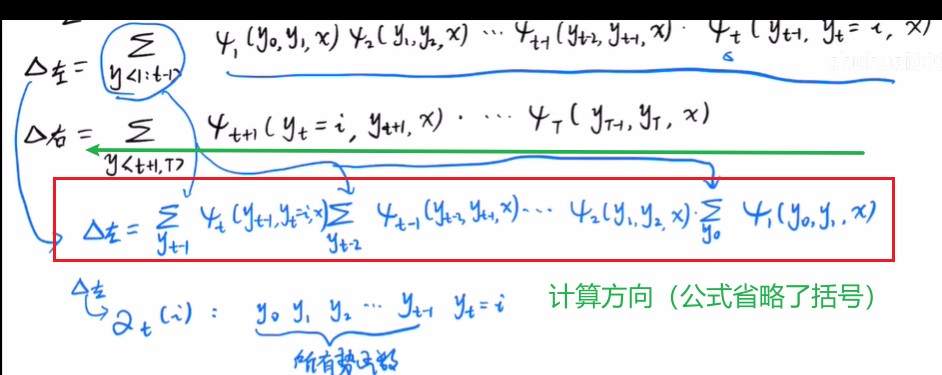 Δ左 = Σ y<1:t-1> ψ₁(y₀,y₁,x) ψ₂(y₁,y₂,x) ⋯ ψt-1(yt-2,yt-1,x) · ψt(yt-1, yt=i, x)
Δ右 = Σ y<t+1,T> ψt+1(yt=i, yt+1, x) · ⋯ ψT(yT-1, yT, x)
Δ左 = Σ yt-1 ψt(yt-1,yt=i,x) Σ yt-2 ψt-1(yt-2,yt-1,x) ⋯ ψ₂(y₁,y₂,x) · Σ y₀ ψ₁(y₀,y₁,x)
Δ左
计算方向（公式省略了括号）
αt(i) : y₀ y₁ y₂ ⋯ yt-1 yt=i
所有势函数